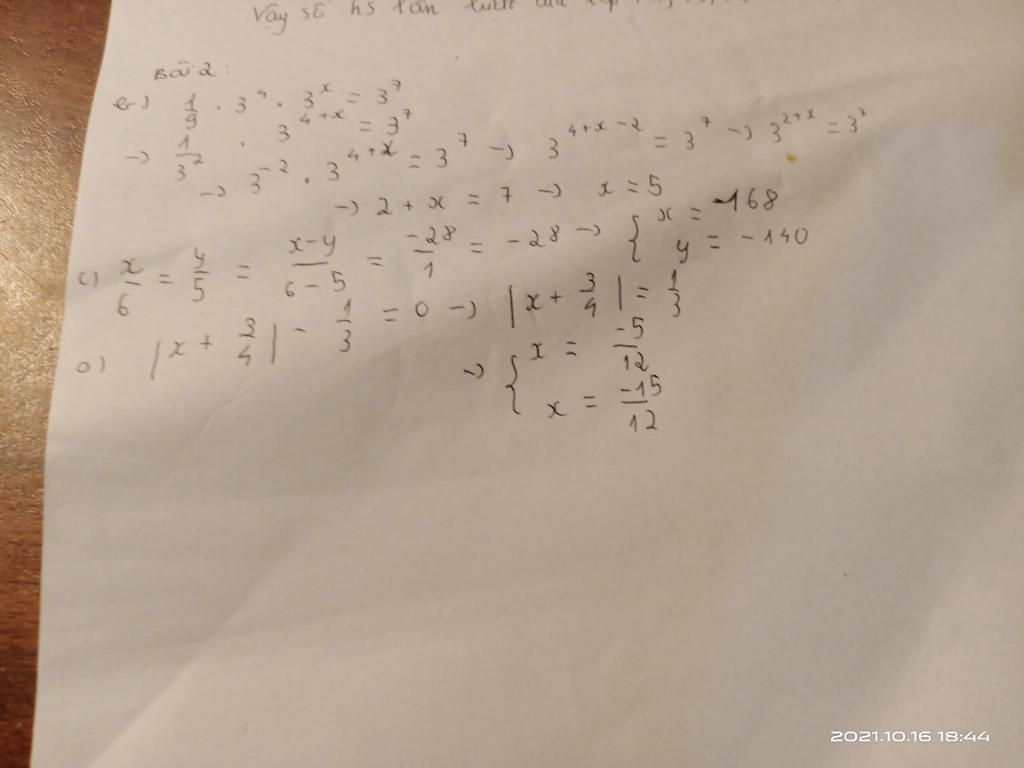 Vậy số hs lần lượt của lớp
Bài 2:
b) 1/9 . 3^4 . 3^x = 3^7
→ 1/3^2 . 3^{4+x} = 3^7
→ 3^{-2} . 3^{4+x} = 3^7 → 3^{4+x-2} = 3^7 → 3^{2+x} = 3^7
→ 2 + x = 7 → x = 5
c) x/6 = y/5 = (x-y)/(6-5) = -28/1 = -28 → { x = -168
y = -140
a) |x + 3/4| - 1/3 = 0 → |x + 3/4| = 1/3
→ { x = -5/12
x = -15/12
2021.10.16 18:44